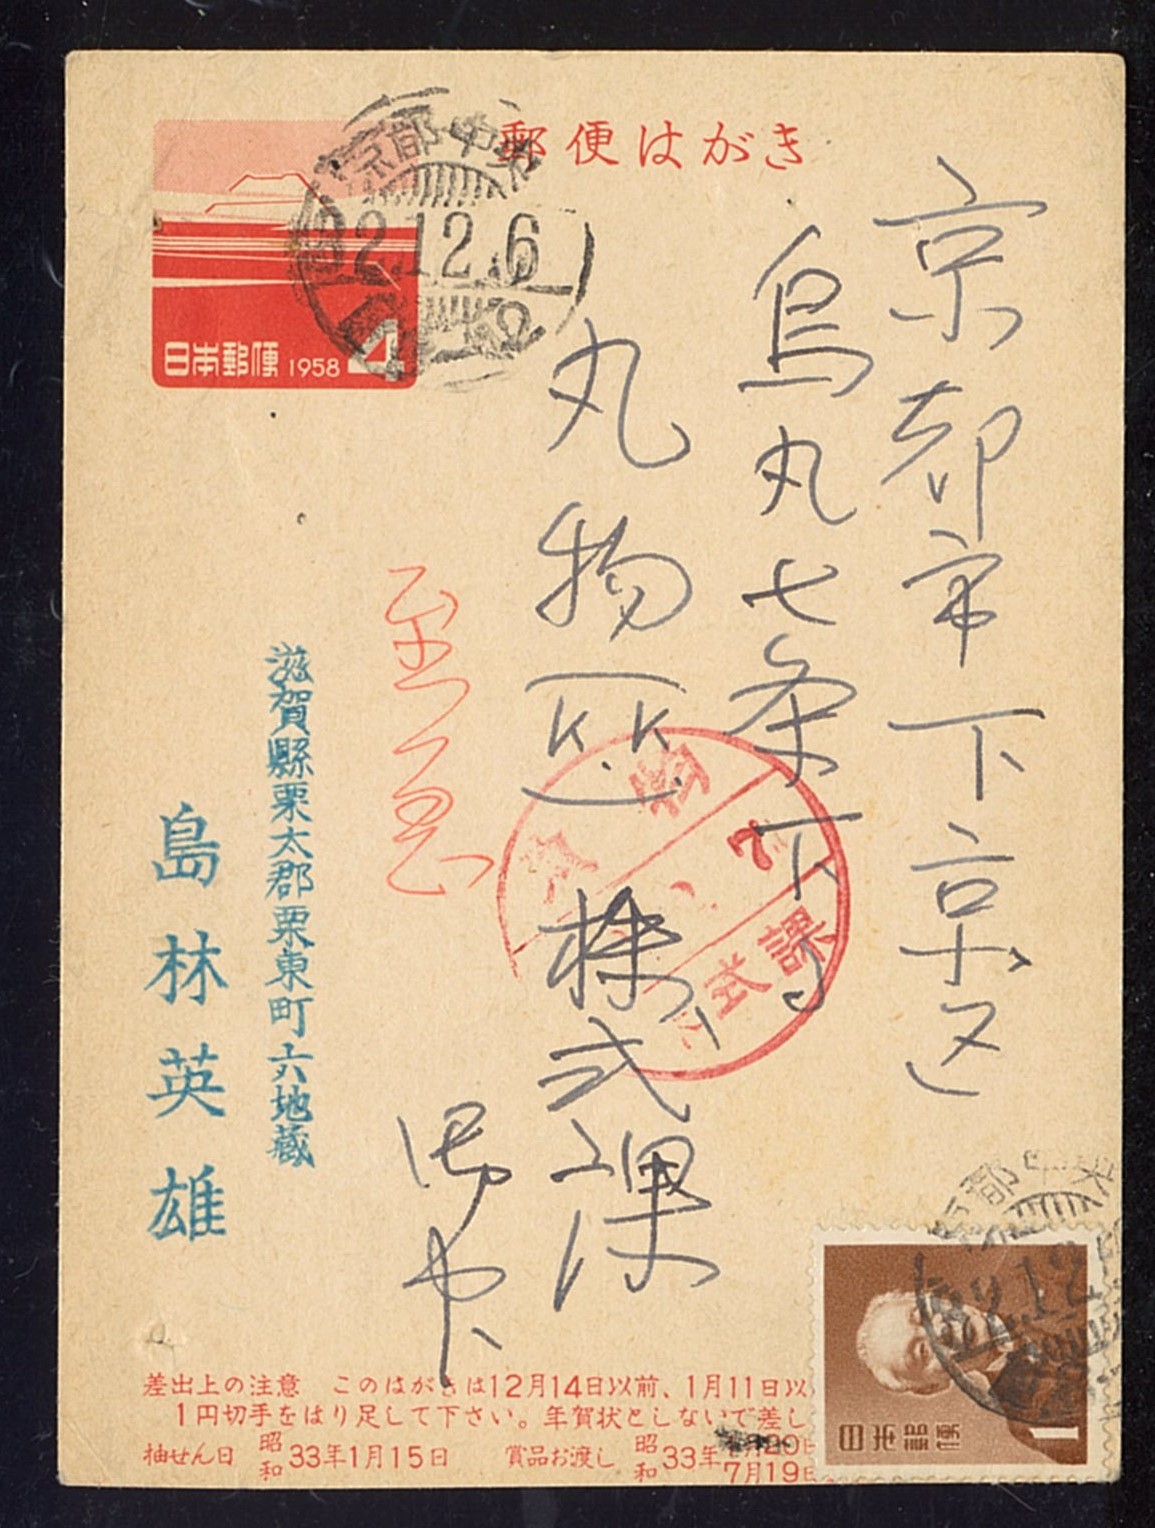 郵便はがき
日本郵便 1958 4
京都中央
32.12.6
京都市下京区
烏丸七条下ル
丸物KK
株式課
御中
至急
株式課
滋賀縣栗太郡栗東町六地蔵
島林英雄
差出上の注意 このはがきは12月14日以前、1月11日以
1円切手をはり足して下さい。年賀状としないで差し
抽せん日 昭和33年1月15日 賞品お渡し 昭和33年 20日
7月19日
京都中央
32.12
日本郵便 1